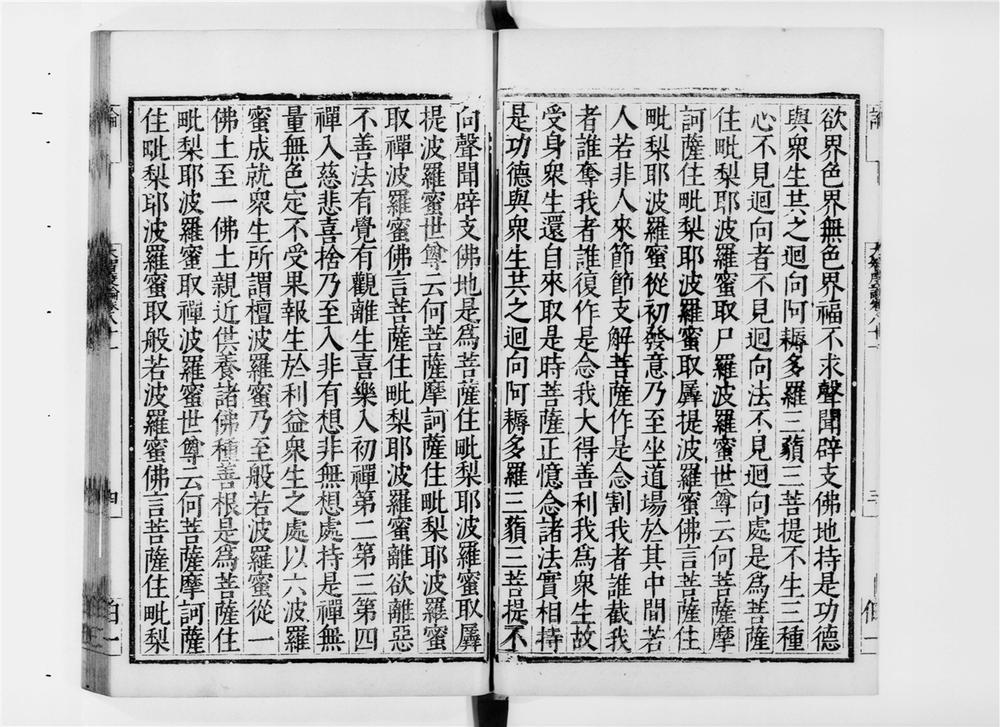 欲界色界無色界福不求聲聞辟支佛地持是功德
與衆生共之迴向阿耨多羅三藐三菩提不生三種
心不見迴向者不見迴向法不見迴向處是爲菩薩
住毗梨耶波羅蜜取尸羅波羅蜜世尊云何菩薩摩
訶薩住毗梨耶波羅蜜取羼提波羅蜜佛言菩薩住
毗梨耶波羅蜜從初發意乃至坐道場於其中間若
人若非人來節節支解菩薩作是念割我者誰截我
者誰奪我者誰復作是念我大得善利我爲衆生故
受身衆生還自來取是時菩薩正憶念諸法實相持
是功德與衆生共之迴向阿耨多羅三藐三菩提不
向聲聞辟支佛地是爲菩薩住毗梨耶波羅蜜取羼
提波羅蜜世尊云何菩薩摩訶薩住毗梨耶波羅蜜
取禪波羅蜜佛言菩薩住毗梨耶波羅蜜離欲離惡
不善法有覺有觀離生喜樂入初禪第二第三第四
禪入慈悲喜捨乃至入非有想非無想處持是禪無
量無色定不受果報生於利益衆生之處以六波羅
蜜成就衆生所謂檀波羅蜜乃至般若波羅蜜從一
佛土至一佛土親近供養諸佛種善根是爲菩薩住
毗梨耶波羅蜜取禪波羅蜜世尊云何菩薩摩訶薩
住毗梨耶波羅蜜取般若波羅蜜佛言菩薩住毗梨